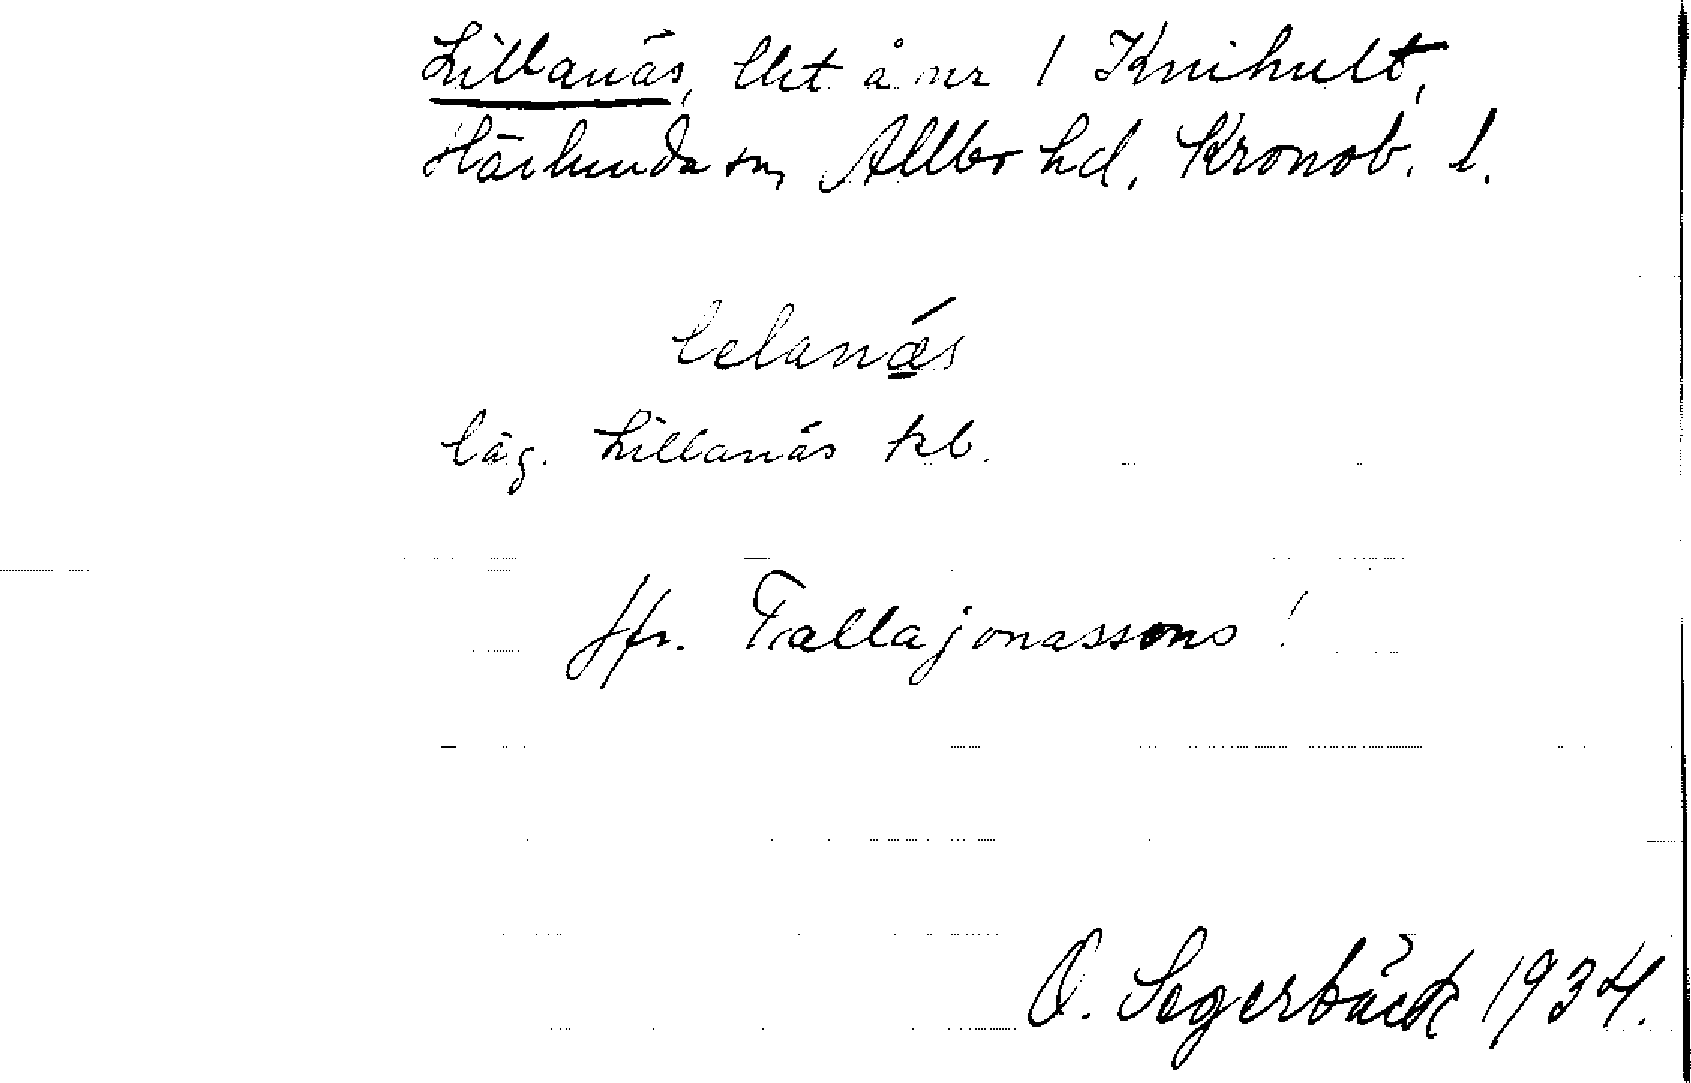 Lillanäs, lht å nr 1 Knihult,
Härlunda sn, Allbo hd, Kronob. l.
lelanä́s
läg. Lillanäs kb.
Jfr. Fallajonassons!
O. Segerbäck 1934.